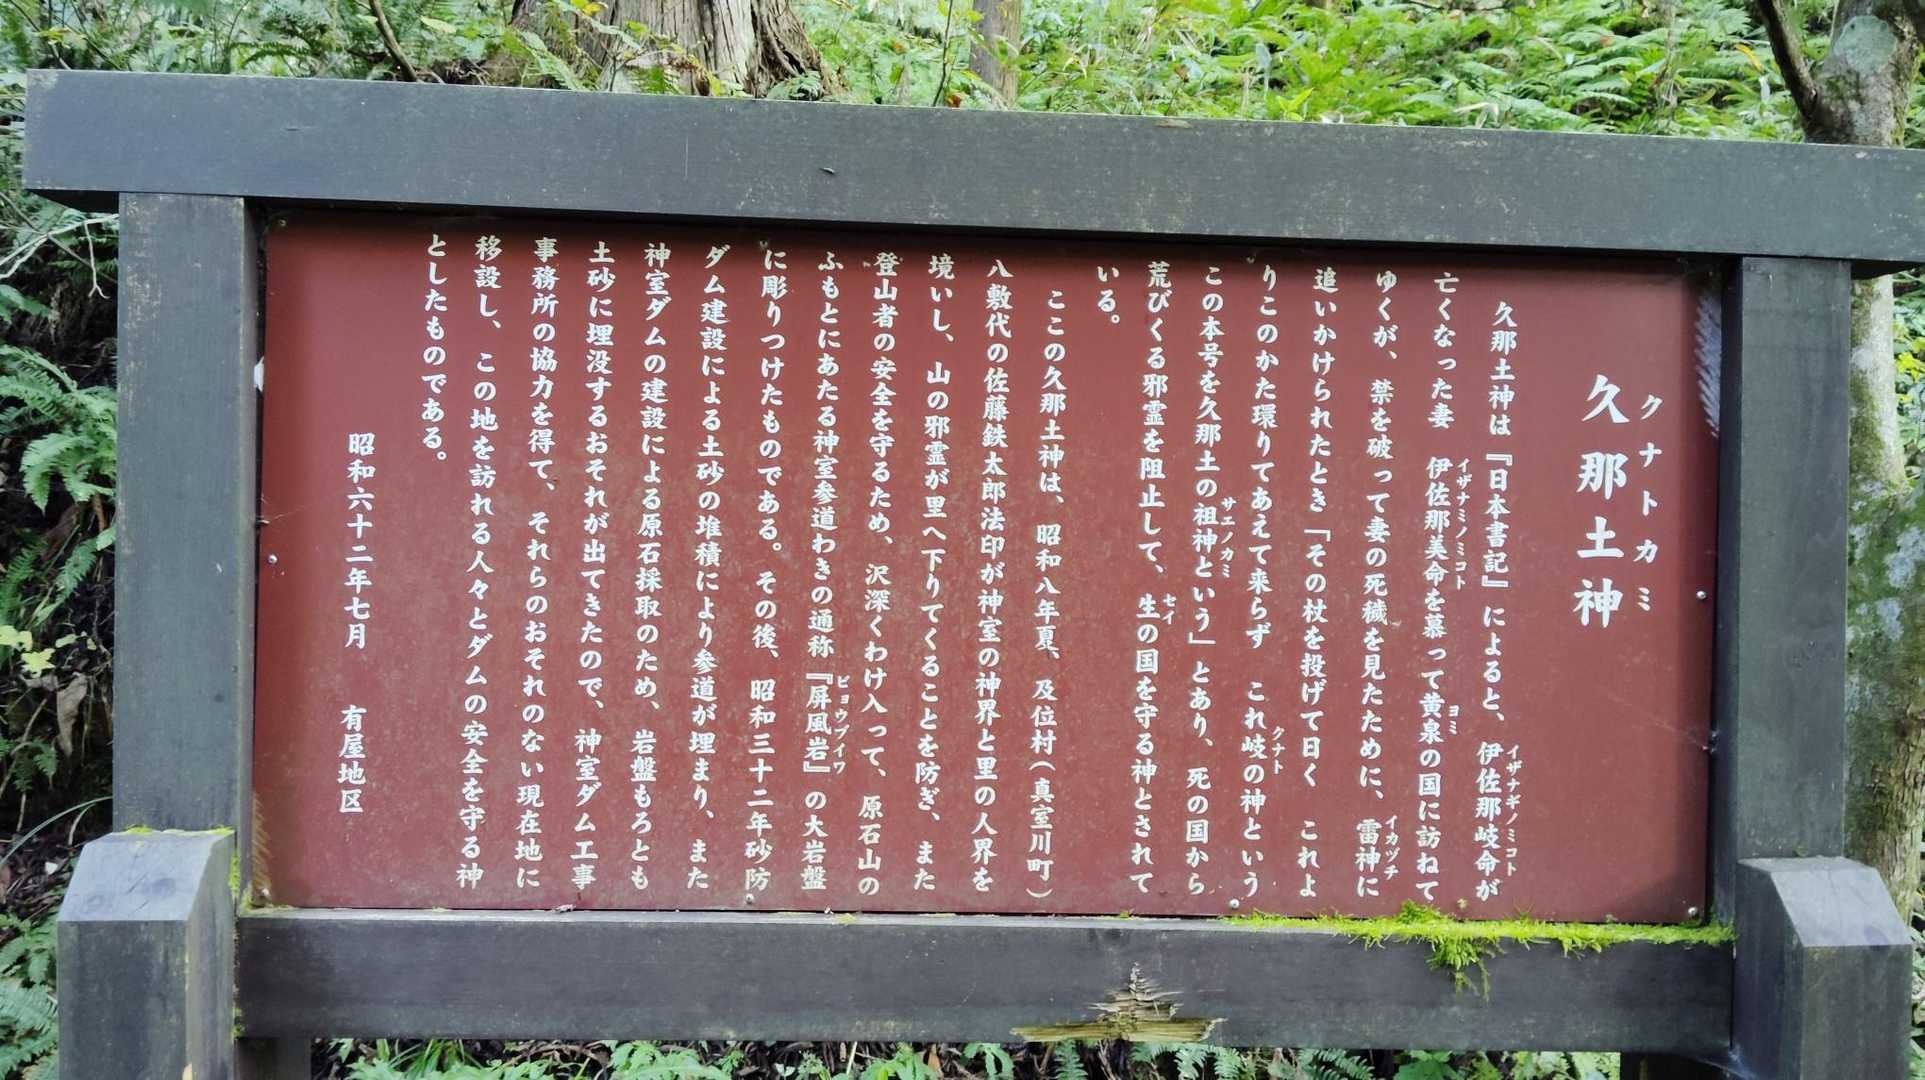 クナトカミ
久那土神
久那土神は『日本書記』によると、伊佐那岐命が
イザナギノミコト
亡くなった妻 伊佐那美命を慕って黄泉の国に訪ねて
イザナミノミコト ヨミ
ゆくが、禁を破って妻の死穢を見たために、雷神に
イカヅチ
追いかけられたとき「その杖を投げて曰く これよ
りこのかた環りてあえて来らず これ岐の神という
クナト
この本号を久那土の祖神という」とあり、死の国から
サエノカミ
荒びくる邪霊を阻止して、生の国を守る神とされて
セイ
いる。
ここの久那土神は、昭和八年夏、及位村(真室川町)
八敷代の佐藤鉄太郎法印が神室の神界と里の人界を
境いし、山の邪霊が里へ下りてくることを防ぎ、また
登山者の安全を守るため、沢深くわけ入って、原石山の
ふもとにあたる神室参道わきの通称『屏風岩』の大岩盤
ビョウブイワ
に彫りつけたものである。その後、昭和三十二年砂防
ダム建設による土砂の堆積により参道が埋まり、また
神室ダムの建設による原石採取のため、岩盤もろとも
土砂に埋没するおそれが出てきたので、神室ダム工事
事務所の協力を得て、それらのおそれのない現在地に
移設し、この地を訪れる人々とダムの安全を守る神
としたものである。
昭和六十二年七月 有屋地区